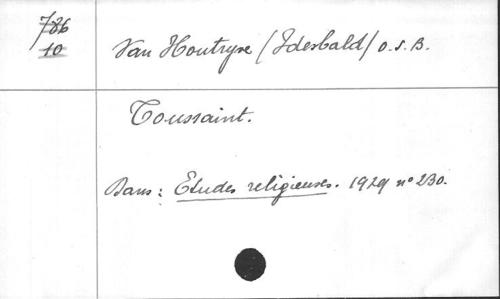 786
10
Van Houtryve (Idesbald) O.S.B.
Toussaint.
Dans: Etudes religieuses. 1929 n° 230.